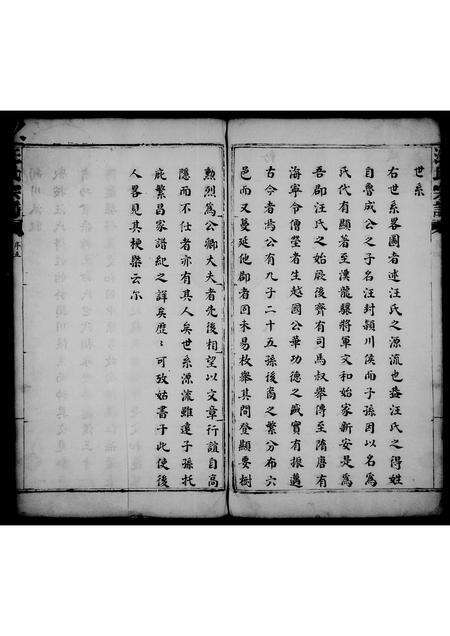 世系
右世系畧圖者述汪氏之源流也盖汪氏之得姓
自魯成公之子名汪封頴川侯而子孫因以名為
氏代有顯著至漢龍驤將軍文和始家新安是為
吾郡汪氏之始厥後齊有司馬叔舉傳至隋唐有
海寧令僧瑩者生越國公華功德之盛實有振邁
古今者焉公有九子二十五孫後裔之繁分布六
邑而又蔓延他郡者固未易枚舉其間登顯要樹
勲烈為公卿大夫者先後相望以文章行誼自高
隱而不仕者亦有其人矣世系源流雖遠子孫托
庇繁昌家譜紀之詳矣歷歷可攷姑書于此使後
人畧見其梗槩云尔